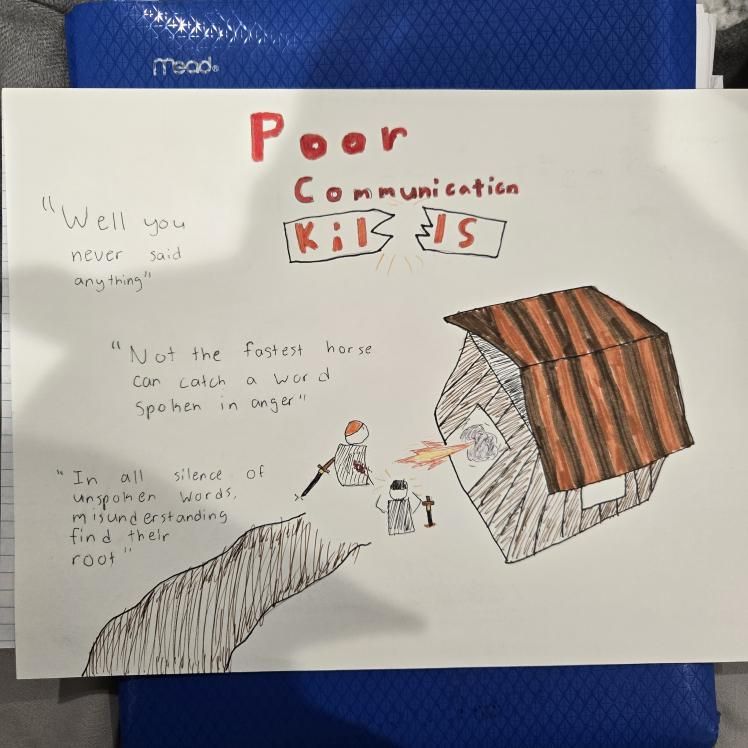 mead®
Poor
Communication
Kil ls
"Well you
never said
anything"
"Not the fastest horse
can catch a word
spoken in anger"
"In all silence of
unspoken words,
misunderstanding
find their
root"